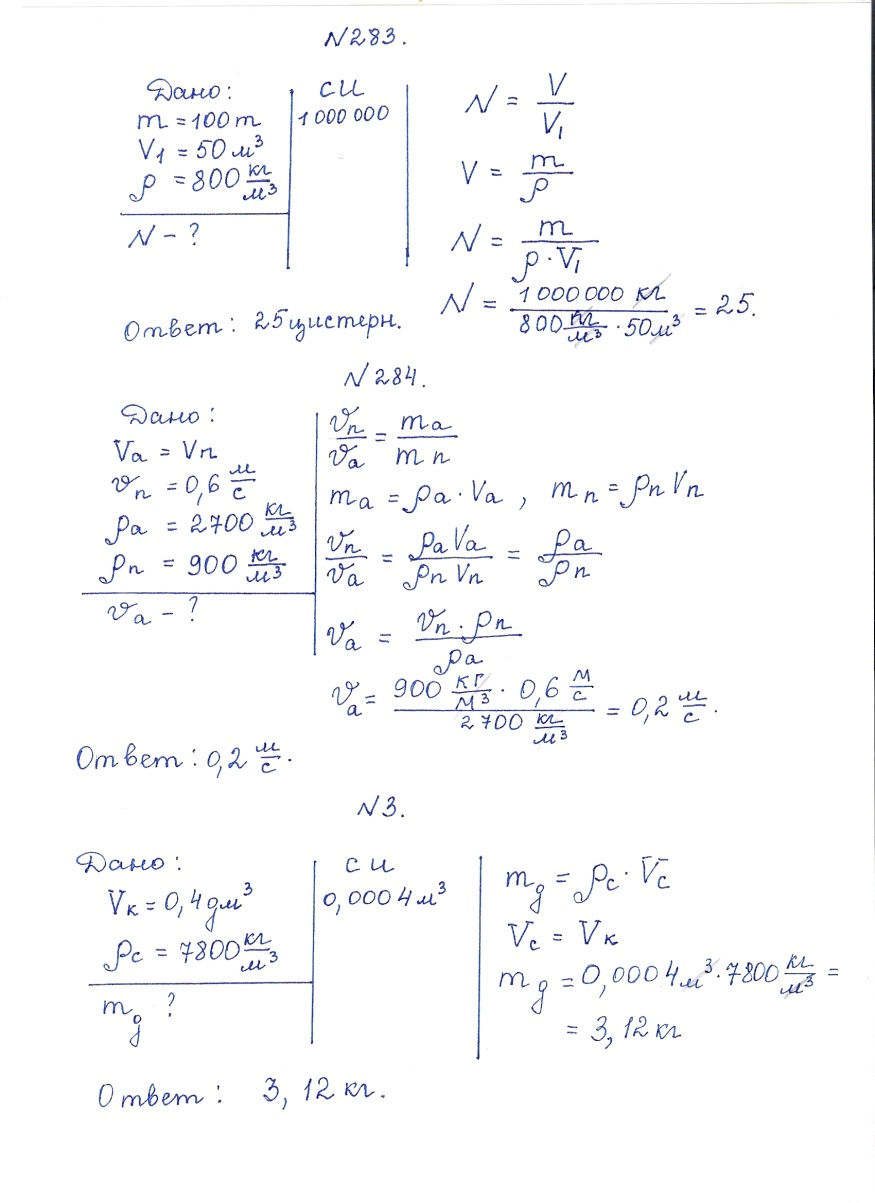 N283.
Дано:
m = 100 т
V1 = 50 м³
ρ = 800 кг/м³
N - ?
СИ
1 000 000
N = V/V1
V = m/ρ
N = m/(ρ·V1)
N = 1 000 000 кг/(800 кг/м³ · 50 м³) = 25.
Ответ: 25 цистерн.
N 284.
Дано:
Vа = Vп
vп = 0,6 м/с
ρа = 2700 кг/м³
ρп = 900 кг/м³
vа - ?
vп/vа = mа/mп
mа = ρа · Vа , mп = ρп Vп
vп/vа = ρа Vа/ρп Vп = ρа/ρп
vа = vп · ρп/ρа
vа = 900 кг/м³ · 0,6 м/с / 2700 кг/м³ = 0,2 м/с.
Ответ: 0,2 м/с.
N3.
Дано:
Vк = 0,4 дм³
ρс = 7800 кг/м³
mд ?
СИ
0,0004 м³
mд = ρс · Vс
Vс = Vк
mд = 0,0004 м³ · 7800 кг/м³ =
= 3,12 кг
Ответ: 3,12 кг.